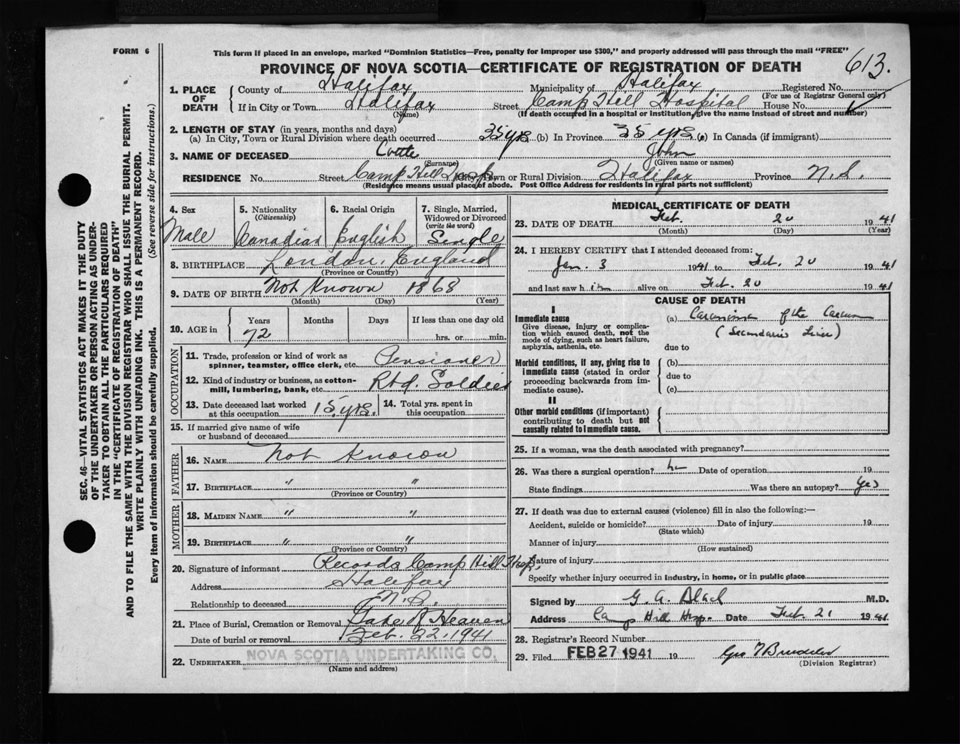 FORM 6
This form if placed in an envelope, marked "Dominion Statistics—Free, penalty for improper use $300," and properly addressed will pass through the mail "FREE"
PROVINCE OF NOVA SCOTIA—CERTIFICATE OF REGISTRATION OF DEATH
613.
1. PLACE OF DEATH
County of Halifax Municipality of Halifax Registered No.
(For use of Registrar General only)
If in City or Town Halifax Street Camp Hill Hospital House No.
(Name) (If death occurred in a hospital or institution, give the name instead of street and number)
2. LENGTH OF STAY (in years, months and days)
(a) In City, Town or Rural Division where death occurred 35 yrs (b) In Province 35 yrs (c) In Canada (if immigrant)
3. NAME OF DECEASED John
(Surname) (Given name or names)
RESIDENCE No. Street Camp Hill Hosp. City, Town or Rural Division Halifax Province N.S.
(Residence means usual place of abode. Post Office Address for residents in rural parts not sufficient)
4. Sex Male
5. Nationality (Citizenship) Canadian
6. Racial Origin English
7. Single, Married, Widowed or Divorced (write the word) Single
8. BIRTHPLACE London, England
(Province or Country)
9. DATE OF BIRTH Not Known 1868
(Month) (Day) (Year)
10. AGE in Years Months Days If less than one day old
72 hrs. or min.
OCCUPATION
11. Trade, profession or kind of work as spinner, teamster, office clerk, etc. Pensioner
12. Kind of industry or business, as cotton-mill, lumbering, bank, etc. Rtd. Soldier
13. Date deceased last worked at this occupation 15 yrs.
14. Total yrs. spent in this occupation
15. If married give name of wife or husband of deceased
FATHER
16. NAME Not Known
17. BIRTHPLACE " "
(Province or Country)
MOTHER
18. MAIDEN NAME " "
19. BIRTHPLACE " "
(Province or Country)
20. Signature of informant Records Camp Hill Hosp.
Address Halifax
Relationship to deceased N.S.
21. Place of Burial, Cremation or Removal Gate of Heaven
Date of burial or removal Feb. 22, 1941
22. UNDERTAKER NOVA SCOTIA UNDERTAKING CO.
(Name and address)
MEDICAL CERTIFICATE OF DEATH
23. DATE OF DEATH Feb. 20 1941
(Month) (Day) (Year)
24. I HEREBY CERTIFY that I attended deceased from:
Jan. 3 1941 to Feb. 20 1941
and last saw him alive on Feb. 20 1941
CAUSE OF DEATH
I
Immediate cause
Give disease, injury or complication which caused death, not the mode of dying, such as heart failure, asphyxia, asthenia, etc.
(a) Carcinoma of the
due to
Morbid conditions, if any, giving rise to immediate cause (stated in order proceeding backwards from immediate cause).
(b)
due to
(c)
II
Other morbid conditions (if important) contributing to death but not causally related to immediate cause.
25. If a woman, was the death associated with pregnancy?
26. Was there a surgical operation? no Date of operation 19
State findings Was there an autopsy? Yes
27. If death was due to external causes (violence) fill in also the following:—
Accident, suicide or homicide? Date of injury 19
(State which)
Manner of injury
(How sustained)
Nature of injury
Specify whether injury occurred in industry, in home, or in public place
Signed by G. A. M.D.
Address Camp Hill Hosp. Date Feb. 21 1941
28. Registrar's Record Number
29. Filed FEB 27 1941 19 Geo
(Division Registrar)
SEC. 46—VITAL STATISTICS ACT MAKES IT THE DUTY
OF THE UNDERTAKER OR PERSON ACTING AS UNDER-
TAKER TO OBTAIN ALL THE PARTICULARS REQUIRED
IN THE "CERTIFICATE OF REGISTRATION OF DEATH"
AND TO FILE THE SAME WITH THE DIVISION REGISTRAR WHO SHALL ISSUE THE BURIAL PERMIT.
WRITE PLAINLY WITH UNFADING INK. THIS IS A PERMANENT RECORD.
Every item of information should be carefully supplied. (See reverse side for instructions.)